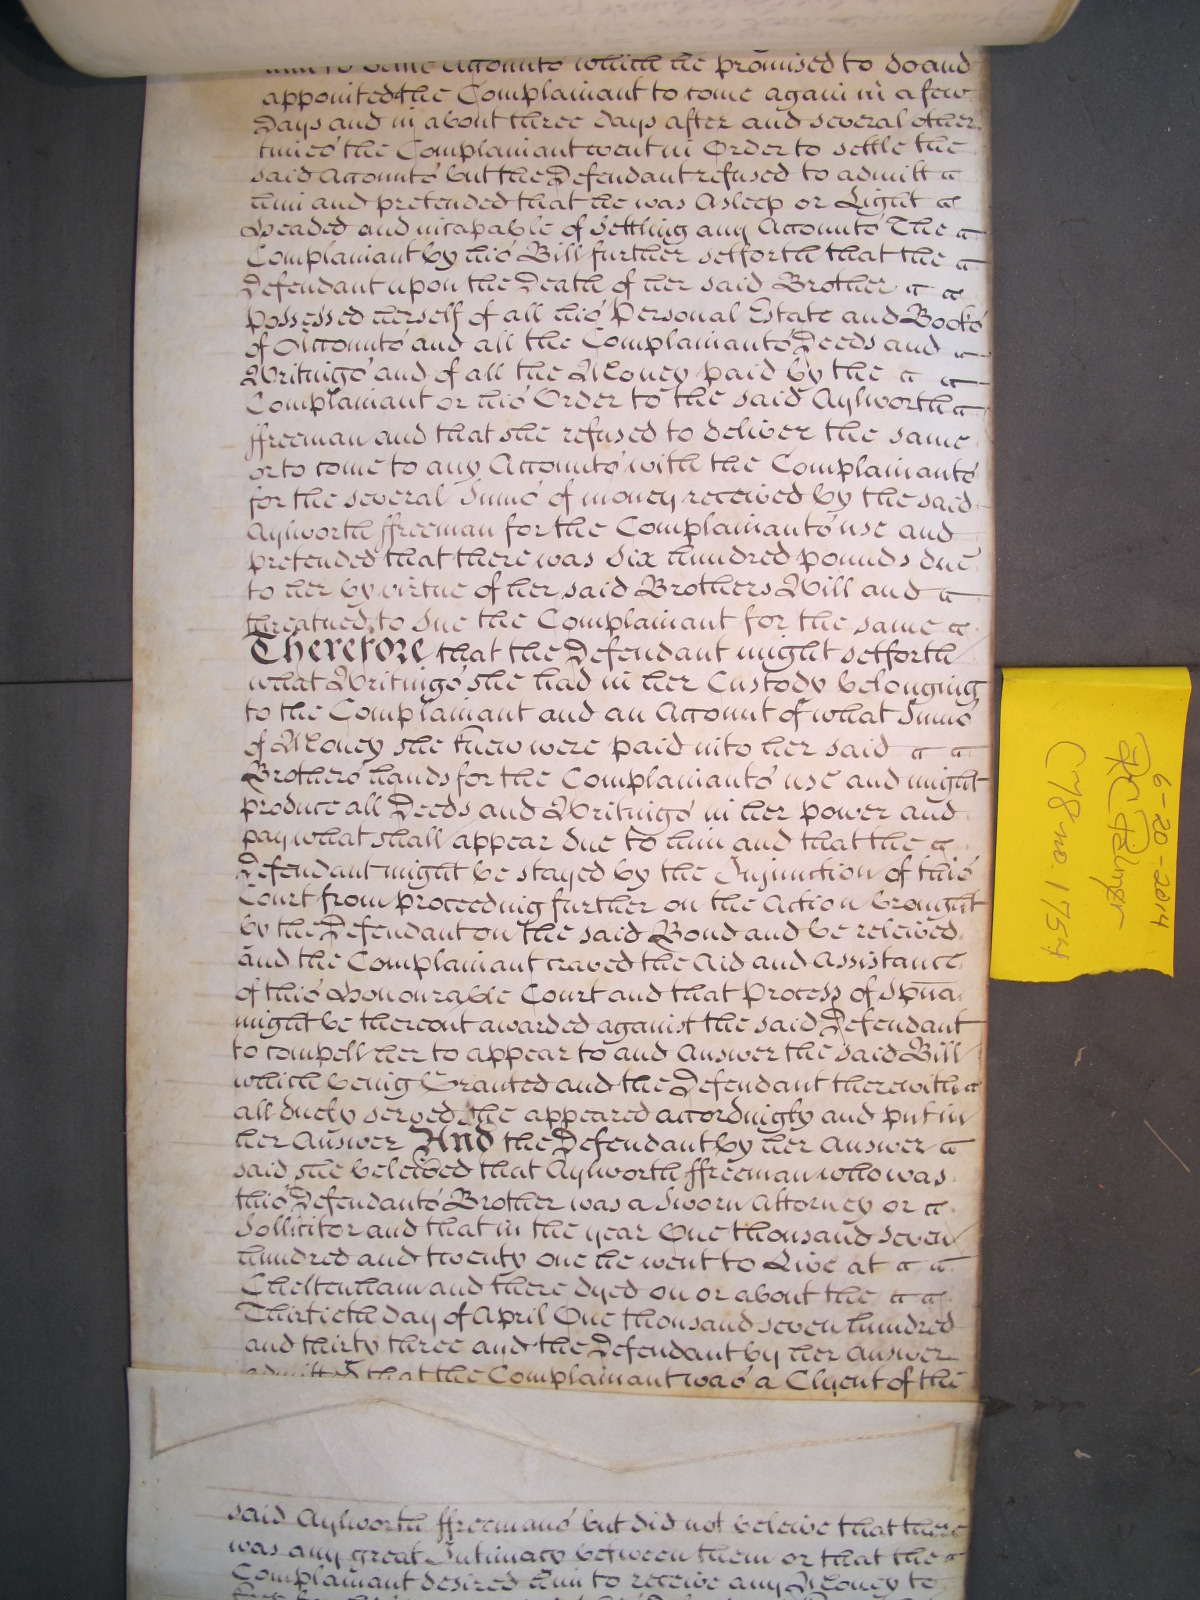 him to come Accounts which he promised to do and
appointed the Complainant to come again in a few
Days and in about three days after and several other
times the Complainant went in Order to settle the
said Accounts but the Defendant refused to admitt
him and pretended that he was Asleep or Light
Headed and incapable of Settling any Accounts The
Complainant by his Bill further setforth that the
Defendant upon the Death of her said Brother
possessed herself of all his Personal Estate and Books
of Accounts and all the Complainants Deeds and
Writings and of all the Money paid by the
Complainant or his Order to the said Aylworth
ffreeman and that she refused to deliver the same
or to come to any Accounts with the Complainants
for the several Sums of money received by the said
Aylworth ffreeman for the Complainants use and
pretended that there was Six hundred pounds due
to her by virtue of her said Brothers Will and
threatned to Sue the Complainant for the same
Therefore that the Defendant might setforth
what Writings she had in her Custody belonging
to the Complainant and an Account of what Sums
of Money she knew were paid into her said
Brothers hands for the Complainants use and might
produce all Deeds and Writings in her power and
pay what shall appear due to him and that the
Defendant might be stayed by the Injunction of this
Court from proceeding further on the Action brought
by the Defendant on the said Bond and be releived
and the Complainant craved the Aid and Assistance
of this Honourable Court and that Process of Spña
might be thereout awarded against the said Defendant
to compell her to appear to and Answer the said Bill
which being Granted and the Defendant therewith
all duely served she appeared accordingly and put in
her Answer And the Defendant by her Answer
said she beleived that Aylworth ffreeman who was
this Defendants Brother was a Sworn Attorney or
Sollicitor and that in the year One thousand seven
hundred and twenty one he went to Live at
Cheltenham and there dyed on or about the
Thirtieth day of April One thousand seven hundred
and thirty three and the Defendant by her Answer
admitted that the Complainant was a Clyent of the
said Aylworth ffreemans but did not beleive that there
was any great Intimacy between them or that the
Complainant desired him to receive any Money to
6-20-2014
C78 no. 1754